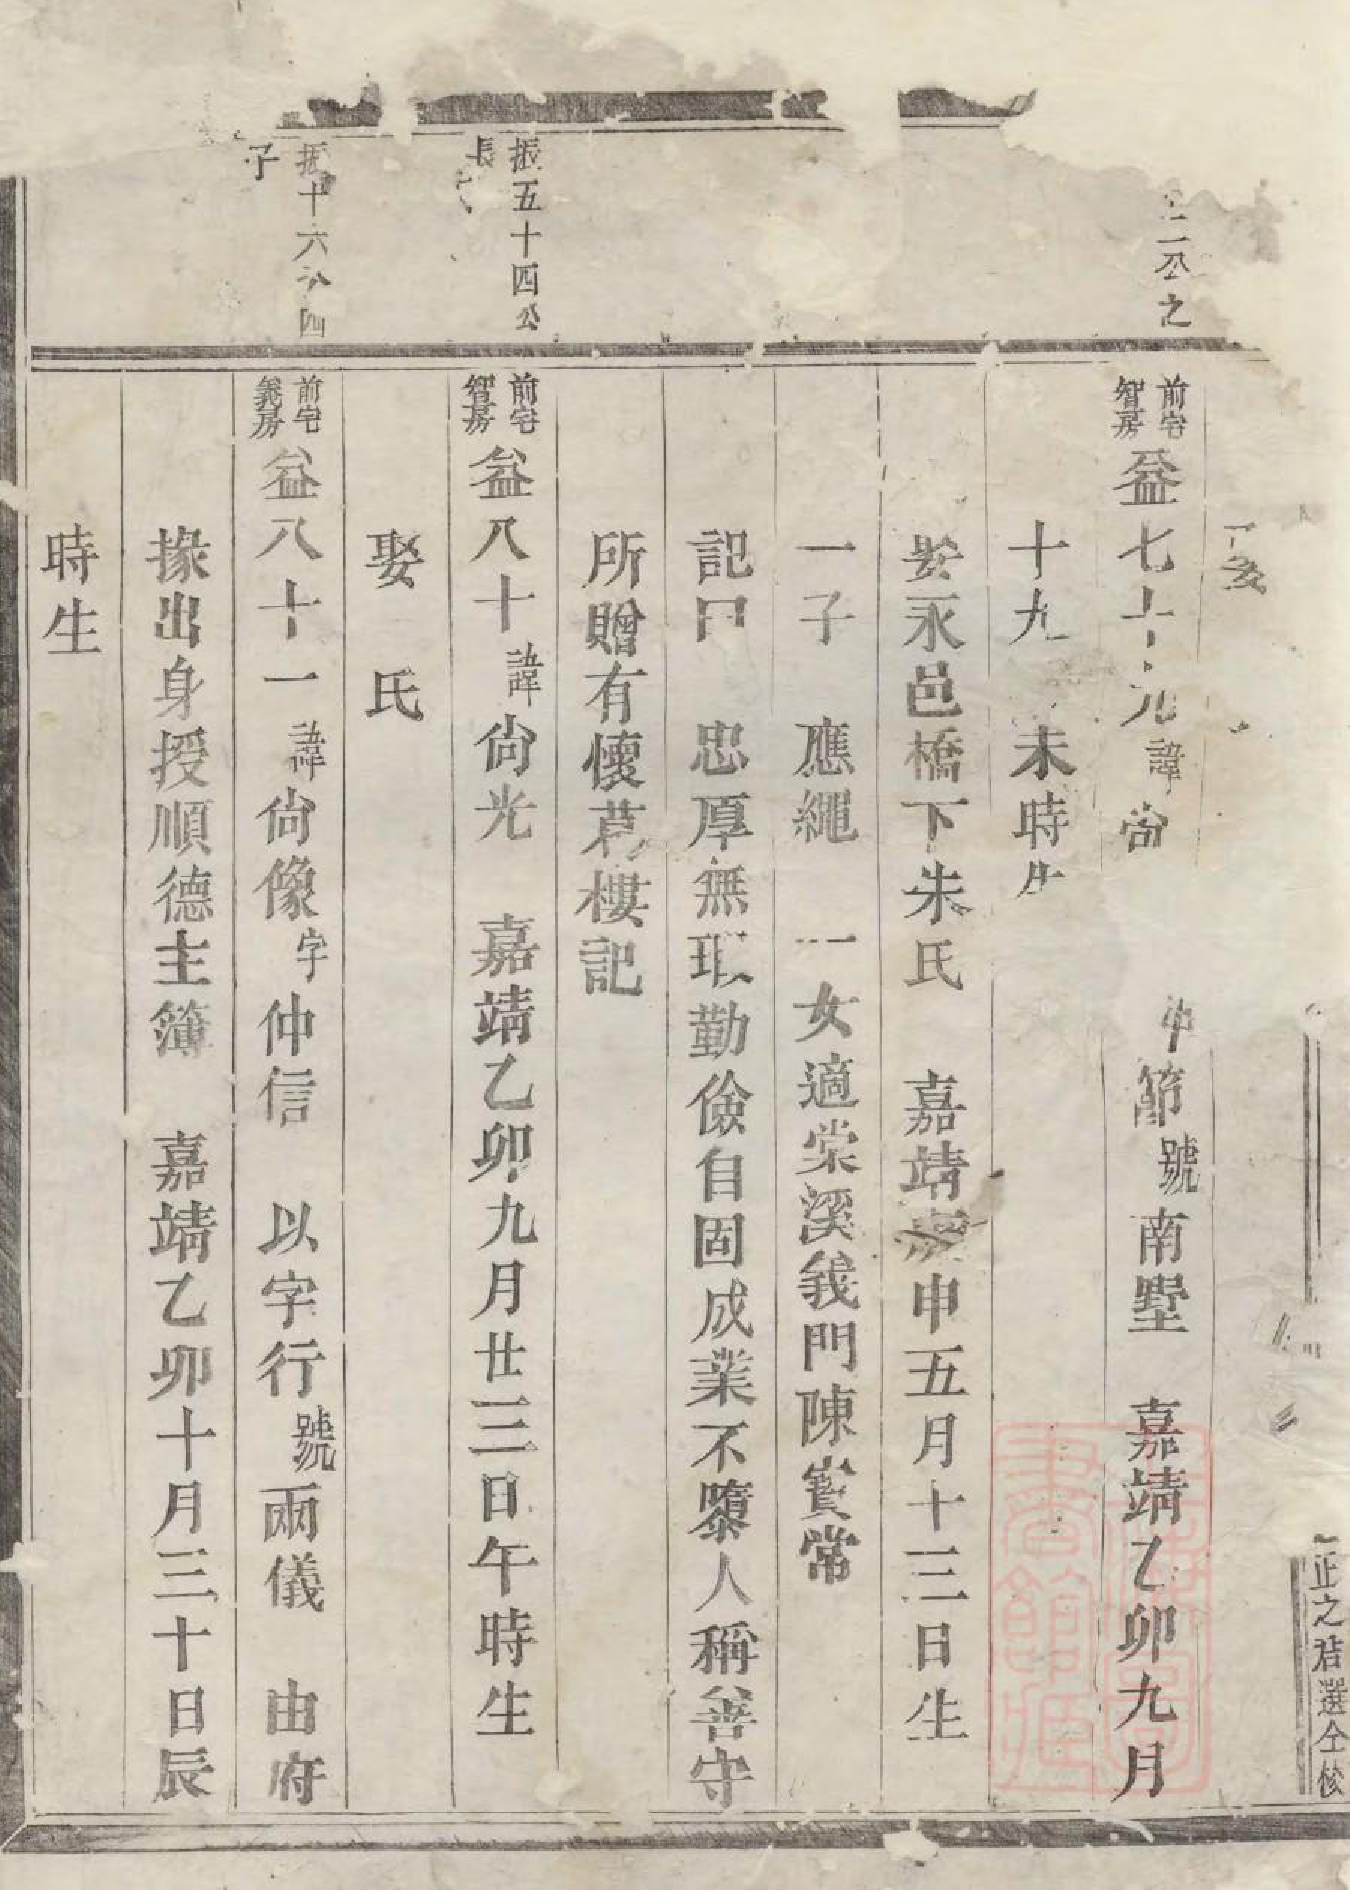 正之君選仝校
亥
二公之
前宅智房益七十九諱尚 仲節號南墅 嘉靖乙卯九月
十九 未時生
娶永邑橋下朱氏 嘉靖 申五月十三日生
一子 應繩 一女適棠溪義門陳實常
記曰 忠厚無瑕勤儉自固成業不隳人稱善守
所贈有懷葛樓記
振五十四公
長子
前宅智房益八十諱尚光 嘉靖乙卯九月廿三日午時生
娶 氏
振十六公四
子
前宅義房益八十一諱尚像字仲信 以字行號兩儀 由府
掾出身授順德主簿 嘉靖乙卯十月三十日辰
時生